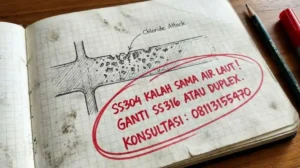 Chloride Attack
SS304 KALAH SAMA AIR LAUT!
GANTI SS316 ATAU DUPLEX.
KONSULTASI: 08113155470